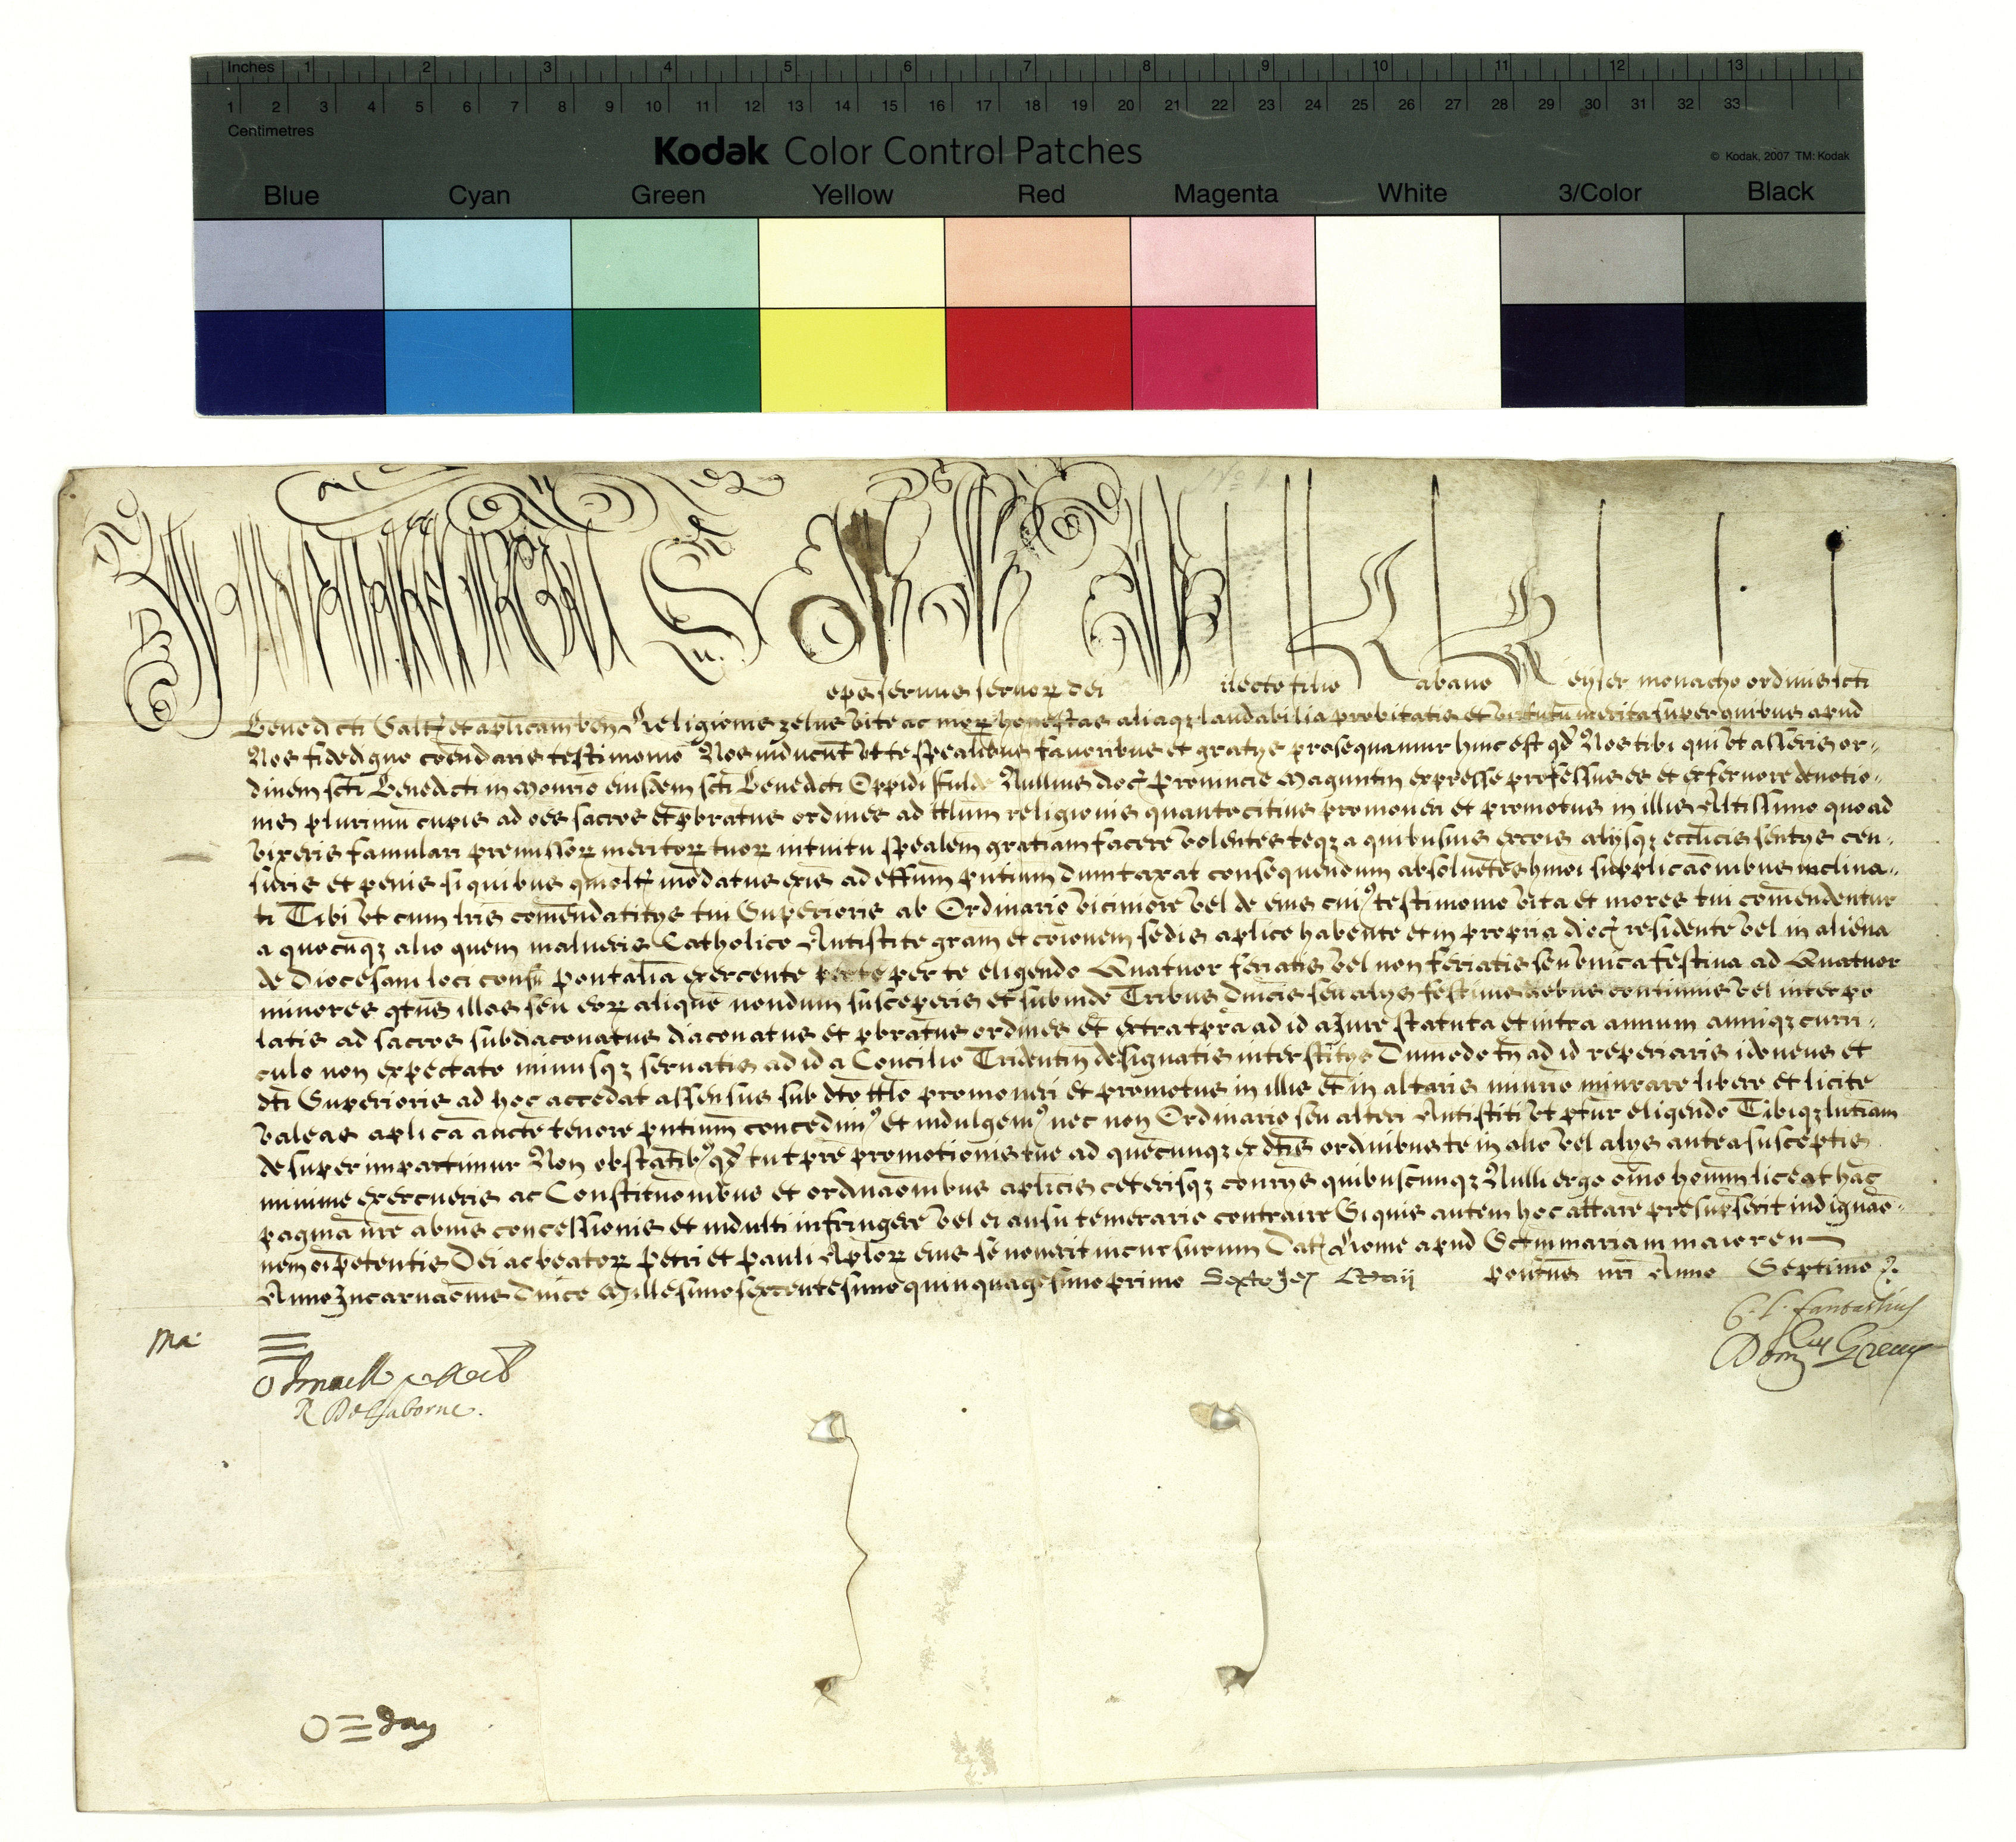 Inches 1 2 3 4 5 6 7 8 9 10 11 12 13
1 2 3 4 5 6 7 8 9 10 11 12 13 14 15 16 17 18 19 20 21 22 23 24 25 26 27 28 29 30 31 32 33
Centimetres
Kodak Color Control Patches
© Kodak, 2007 TM: Kodak
Blue Cyan Green Yellow Red Magenta White 3/Color Black
ep̄s seruus seruor dei ilecto filio abano eyser monacho ordinis scti
Benedicti Saltm̄ et aplicam ben̄ Religionis zelus vite ac mor honestas aliaqz laudabilia probitatis et virtutū merita super quibus apud
Nos fidedigno com̄endaris testimonio Nos inducunt vt te spealibus fauoribus et gratijs prosequamur hinc est qd Nos tibi qui vt asseris or-
dinem scti Benedicti in mōnrio eiusdem scti Benedicti Oppidi Fulde Nullius dioc̄ Prouincie Maguntin̄ expresse professus es et ex feruore deuotio-
nis plurimū cupis ad oēs sacros et p̄bratus ordines ad ttlum religionis quantocitius promoueri et promotus in illis Altissimo quoad
vixeris famulari premissor meritor tuor intuitu spealem gratiam facere volentes teqz a quibusuis excōis alijsqz eccl̄icis sentijs cen-
suris et penis si quibus qmolt̄ inodatus exis ad effum pn̄tium dumtaxat consequendum absoluentes hmōi supplicaōnibus inclina-
ti Tibi vt cum lris com̄endatitijs tui Superioris ab Ordinario viciniore vel de eius cui9 testimonio vita et mores tui com̄endentur
a quocūqz alio quem malueris Catholico Antistite grām et cōionem sedis aplice habente et in propria dioc̄ residente vel in aliena
de Diocesani loci consū pontalia exercente per te eligendo Quatuor feriatis vel non feriatis seu vnica festiua ad Quatuor
minores qtus illos seu eor aliquē nondum susceperis et subinde Tribus dnicis seu alijs festiuis diebus continuis vel interpo
latis ad sacros subdiaconatus diaconatus et p̄bratus ordines et̄ extra tp̄ra ad id a Jure statuta et intra annum anniqz curri-
culo non expectato minusqz seruatis ad id a Concilio Tridentin̄ designatis interstitijs Dummodo tn̄ ad id reperiaris idoneus et
dti Superioris ad hoc accedat assensus sub dto ttlo promoueri et promotus in illis et̄ in altaris minrio minrare libere et licite
valeas aplica aucte tenore pn̄tium concedim9 et indulgem9 nec non Ordinario seu alteri Antistiti vt pfur eligendo Tibiqz lntiam
desuper impartimur Non obstatib9 qd tu tp̄re promotionis tue ad quecunqz ex dtis ordinibus te in alio vel alijs antea susceptis
minime exercueris ac Constituōnibus et ordinaōnibus aplicis ceterisqz contrijs quibuscunqz Nulli ergo om̄o hominum liceat hāc
paginā nrē abnis concessionis et indulti infringere vel ei ausu temerario contraire Si quis autem hoc attare presumpserit indignaō-
nem oip̄otentis Dei ac beator Petri et Pauli Aplor eius se nouerit incursurum Dat̄ Rome apud Sctm mariam maiorem
Anno Incarnaōnis Dnice Millesimo sexcentesimo quinquagesimo primo Sexto Id Maij Pontus nri Anno Septimo
Ma: